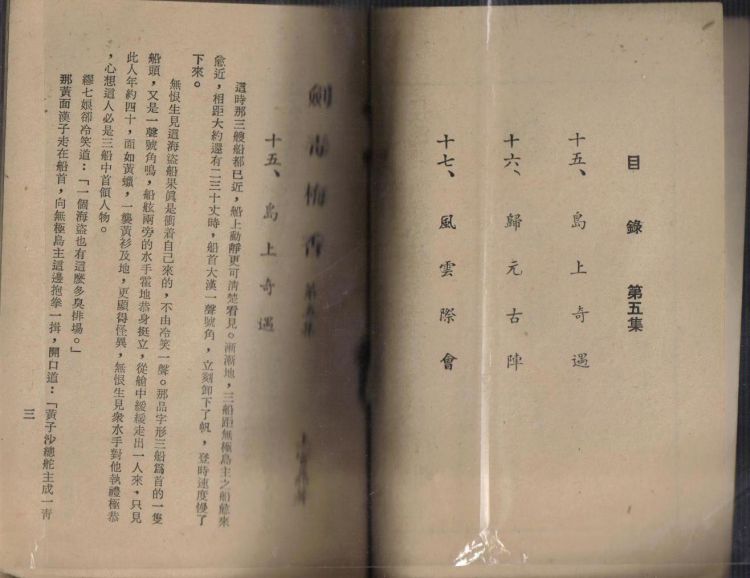 目錄 第五集
十五、島上奇遇
十六、歸元古陣
十七、風雲際會
劍毒梅香 第五集
十五、島上奇遇
這時那三艘船都已近，船上動靜更可清楚看見。漸漸地，三船距無極島主之船愈來
愈近，相距大約還有二三十丈時，船首大漢一聲號角，立刻卸下了帆，登時速度慢了
下來。
無恨生見這海盜船果眞是衝着自己來的，不由冷笑一聲。那品字形三船爲首的一隻
船頭，又是一聲號角鳴，船舷兩旁的水手霍地恭身挺立，從艙中緩緩走出一人來，只見
此人年約四十，面如黃蠟，一襲黃衫及地，更顯得怪異，無恨生見衆水手對他執禮極恭
，心想這人必是三船中首領人物。
繆七娘卻冷笑道：「一個海盜也有這麼多臭排場。」
那黃面漢子走在船首，向無極島主這邊抱拳一揖，開口道：「黃子沙總舵主成一青
三